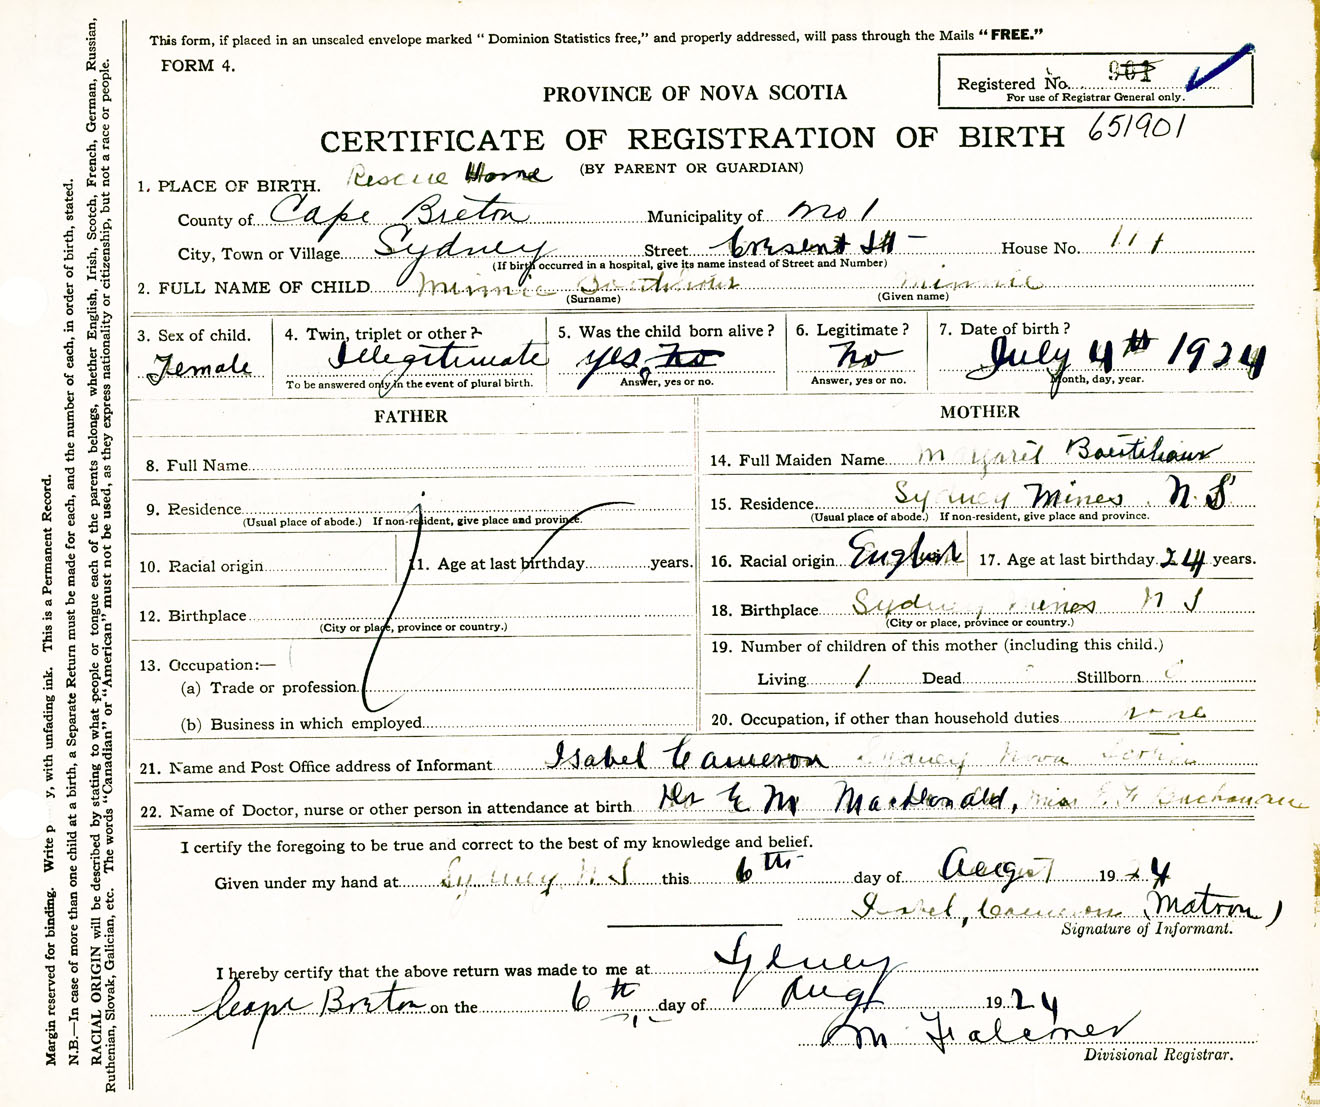 This form, if placed in an unsealed envelope marked “Dominion Statistics free,” and properly addressed, will pass through the Mails “FREE.”
FORM 4.
Registered No. 901
For use of Registrar General only.
PROVINCE OF NOVA SCOTIA
651901
CERTIFICATE OF REGISTRATION OF BIRTH
(BY PARENT OR GUARDIAN)
1. PLACE OF BIRTH. Rescue Home
County of Cape Breton Municipality of No 1
City, Town or Village Sydney Street Cresent St – House No. 111
(If birth occurred in a hospital, give its name instead of Street and Number)
2. FULL NAME OF CHILD Minnie Boutilier Minnie
(Surname) (Given name)
3. Sex of child. Female
4. Twin, triplet or other? Illegitimate
To be answered only in the event of plural birth.
5. Was the child born alive? yes no
Answer, yes or no.
6. Legitimate? No
Answer, yes or no.
7. Date of birth? July 4th 1924
Month, day, year.
FATHER
8. Full Name
9. Residence
(Usual place of abode.) If non-resident, give place and province.
10. Racial origin 11. Age at last birthday years.
12. Birthplace
(City or place, province or country.)
13. Occupation:—
(a) Trade or profession
(b) Business in which employed
MOTHER
14. Full Maiden Name Margaret
15. Residence Sydney Mines N.S
(Usual place of abode.) If non-resident, give place and province.
16. Racial origin English 17. Age at last birthday 24 years.
18. Birthplace Sydney Mines N S
(City or place, province or country.)
19. Number of children of this mother (including this child.)
Living 1 Dead Stillborn
20. Occupation, if other than household duties none
21. Name and Post Office address of Informant Isabel Cameron Sydney Nova Scotia
22. Name of Doctor, nurse or other person in attendance at birth Dr E M MacDonald, Miss
I certify the foregoing to be true and correct to the best of my knowledge and belief.
Given under my hand at Sydney N.S this 6th day of August 1924
Isabel, Cameron (Matron)
Signature of Informant.
I hereby certify that the above return was made to me at Sydney
Cape Breton on the 6th day of Aug 1924
M Falconer
Divisional Registrar.
Margin reserved for binding. Write p y, with unfading ink. This is a Permanent Record.
N.B.—In case of more than one child at a birth, a Separate Return must be made for each, and the number of each, in order of birth, stated.
RACIAL ORIGIN will be described by stating to what people or tongue each of the parents belongs, whether English, Irish, Scotch, French, German, Russian,
Ruthenian, Slovak, Galician, etc. The words “Canadian” or “American” must not be used, as they express nationality or citizenship, but not a race or people.